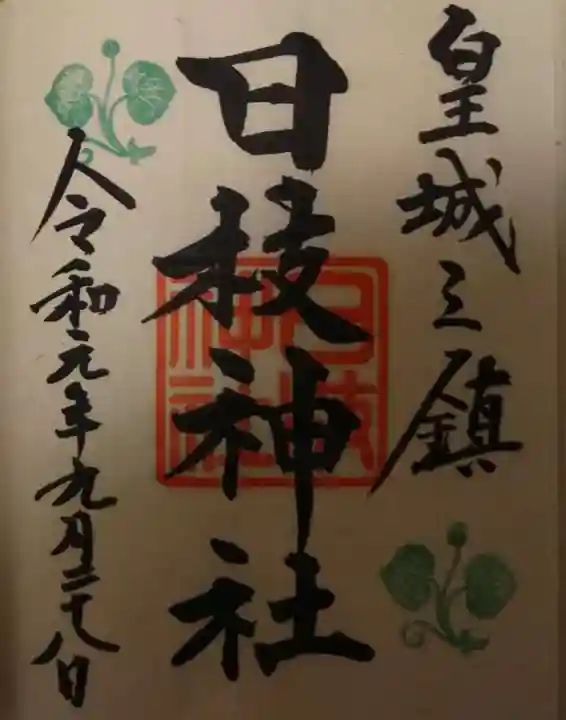 皇城之鎮
日枝神社
日枝
神社
令和元年九月二十八日